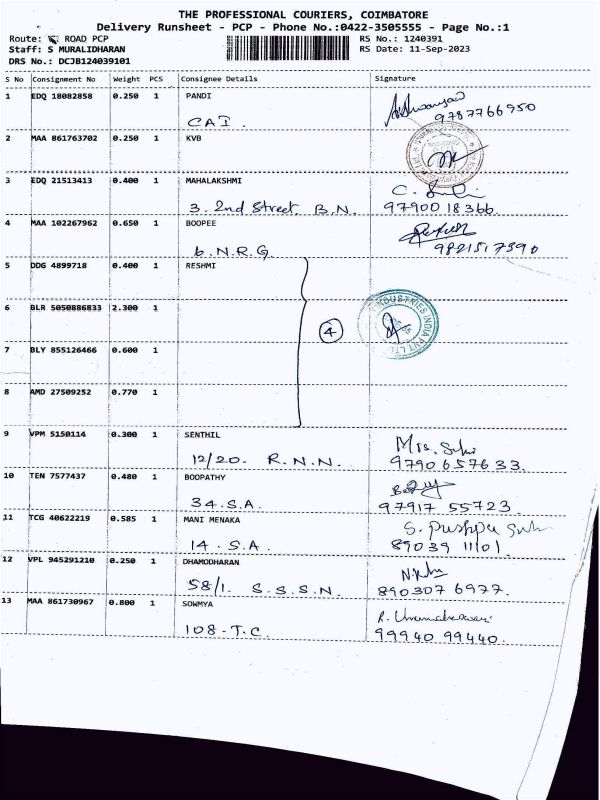 THE PROFESSIONAL COURIERS, COIMBATORE
Delivery Runsheet - PCP - Phone No.:0422-3505555 - Page No.:1
Route: ROAD PCP
RS No.: 1240391
Staff: S MURALIDHARAN
RS Date: 11-Sep-2023
DRS No.: DCJB124039101
S No Consignment No Weight PCS Consignee Details Signature
1 EDQ 18082858 0.250 1 PANDI
CAI. 9787766950
2 MAA 861763702 0.250 1 KVB
3 EDQ 21513413 0.400 1 MAHALAKSHMI
3. 2nd Street. B.N. 9790018366.
4 MAA 102267962 0.650 1 BOOPEE
6. N.R.G. 9821517390
5 DDG 4899718 0.400 1 RESHMI
6 BLR 5050886833 2.300 1
4
INDUSTRIES INDIA PVT LTD
7 BLY 855126466 0.600 1
8 AMD 27509252 0.770 1
9 VPM 5150114 0.300 1 SENTHIL Mrs.
12/20. R.N.N. 9790657633.
10 TEN 7577437 0.480 1 BOOPATHY
34. S.A. 97917 55723.
11 TCG 40622219 0.585 1 MANI MENAKA S. Pushpa
14. S.A. 89039 11101.
12 VPL 945291210 0.250 1 DHAMODHARAN
58/1. S.S.S.N. 890307 6977.
13 MAA 861730967 0.800 1 SOWMYA R. Umamaheswari
108-T.C. 99940 99440.